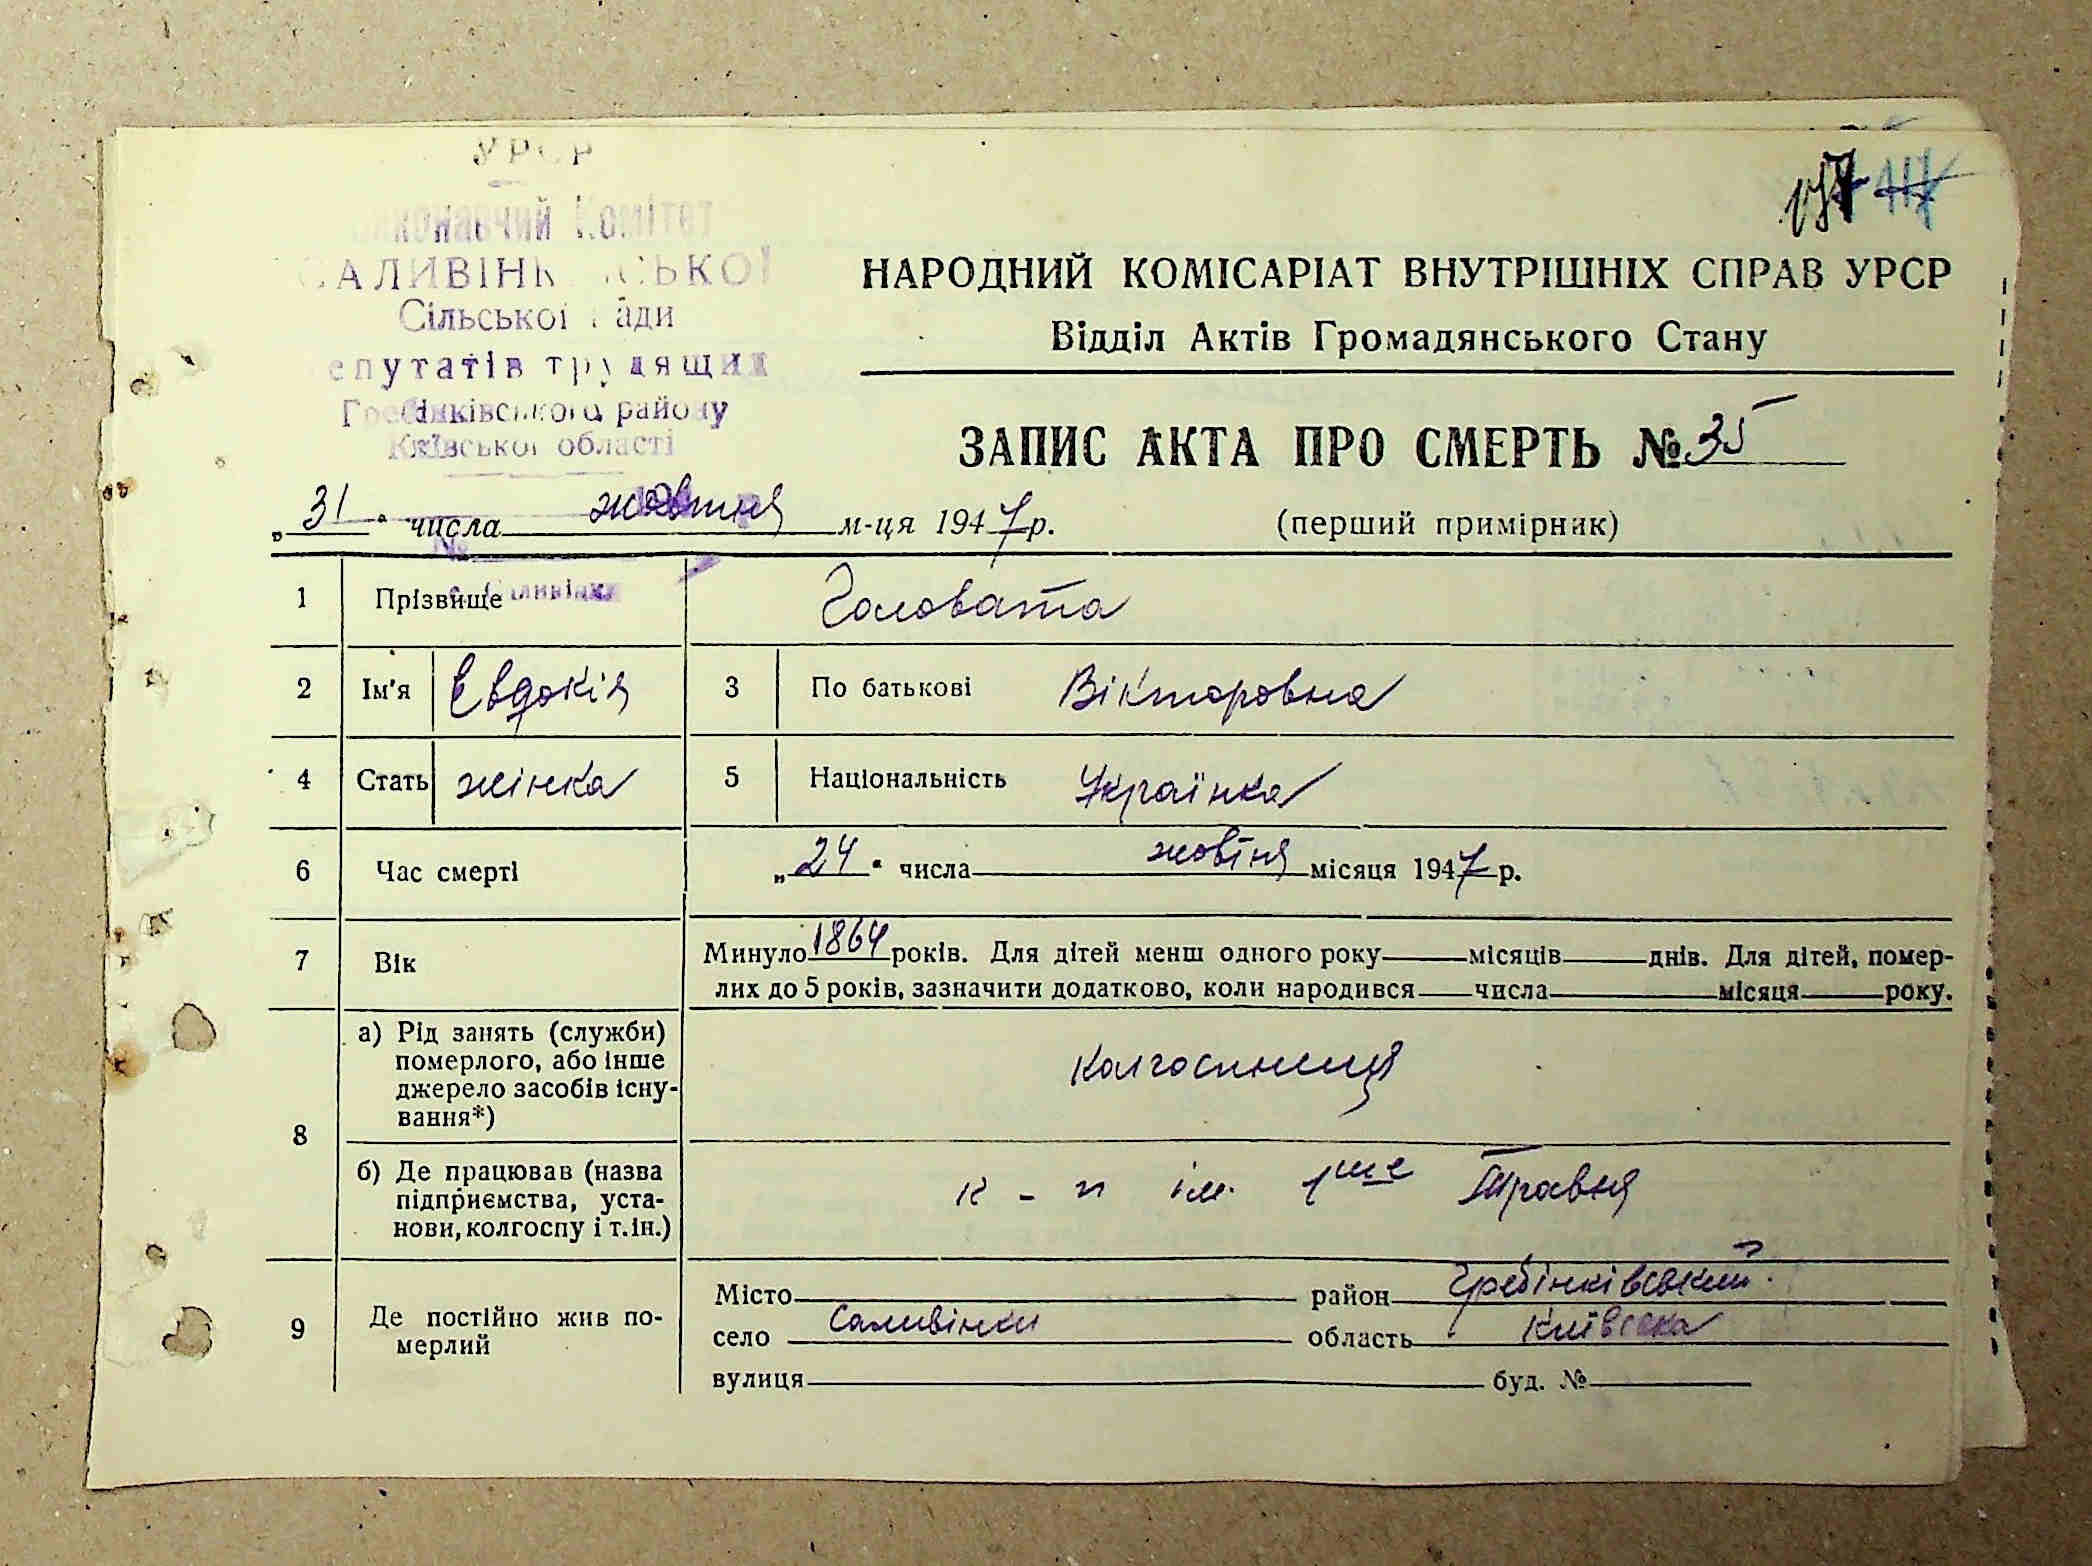 УРСР
Виконавчий Комітет
САЛИВІНКІВСЬКОЇ
Сільської Ради
депутатів трудящих
Гребінківського району
Київської області
НАРОДНИЙ КОМІСАРІАТ ВНУТРІШНІХ СПРАВ УРСР
Відділ Актів Громадянського Стану
ЗАПИС АКТА ПРО СМЕРТЬ № 35
„31“ числа жовтня м-ця 1947 р. (перший примірник)
1 Прізвище Головата
2 Ім'я Евдокія 3 По батькові Вікторовна
4 Стать жінка 5 Національність Українка
6 Час смерті „24“ числа жовтня місяця 1947 р.
7 Вік Минуло 1864 років. Для дітей менш одного року місяців днів. Для дітей, помер-
лих до 5 років, зазначити додатково, коли народився числа місяця року.
8 а) Рід занять (служби)
померлого, або інше
джерело засобів існу-
вання*)
колгоспниця
б) Де працював (назва
підприємства, уста-
нови, колгоспу і т.ін.)
к-п ім. 1ше Травня
9 Де постійно жив по-
мерлий
Місто район Гребінківський
село Саливінки область Київська
вулиця буд. №